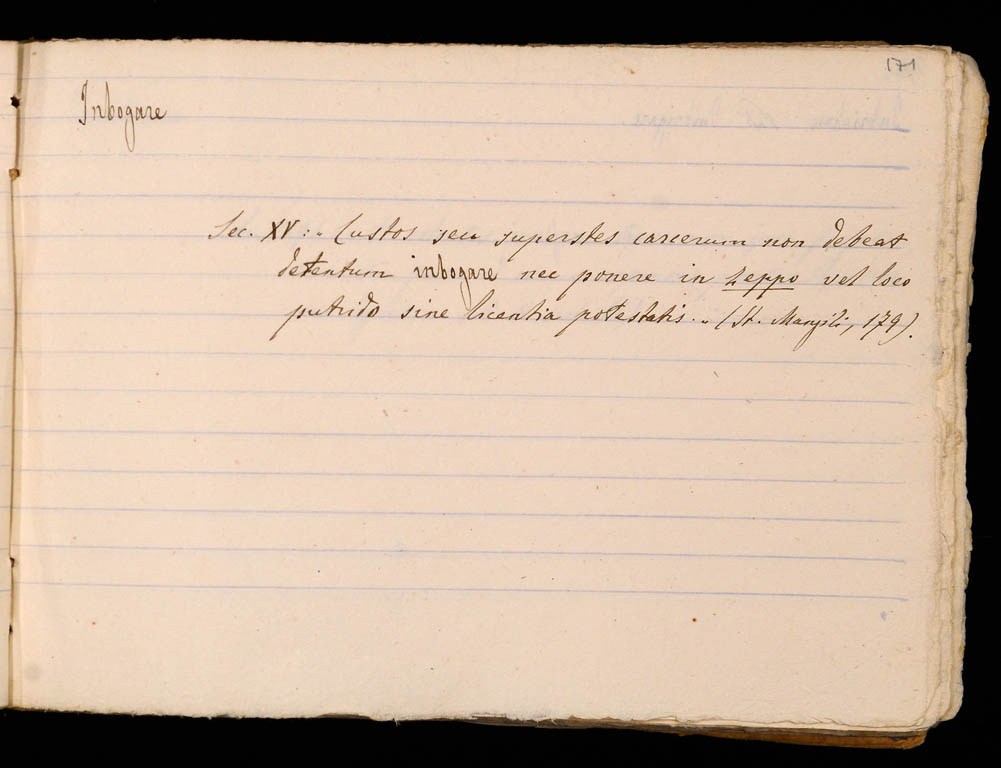 171
Inbogare
Sec. XV: „ Custos seu superstes carcerum non debeat
detentum inbogare nec ponere in zeppo vel loco
putrido sine licentia potestatis. „ (St. 179).